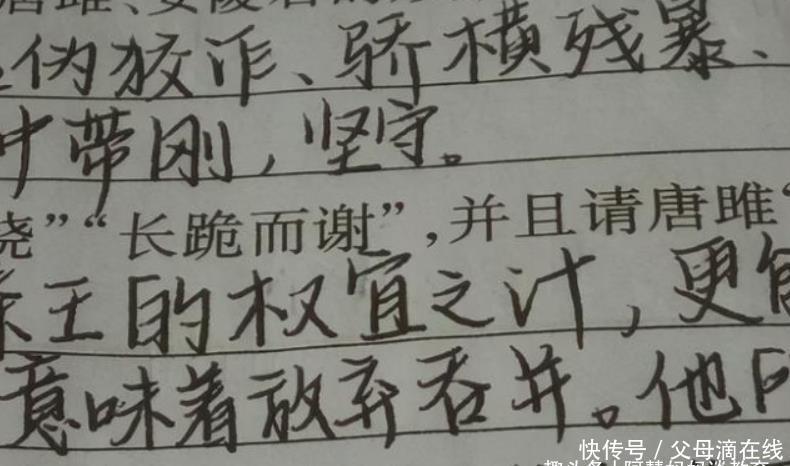 唐雎、安陵君的
伪狡诈、骄横残暴、
中带刚，坚守。
挠”“长跪而谢”，并且请唐雎“
秦王的权宜之计，更
意味着放弃吞并。他
快传号／父母滴在线